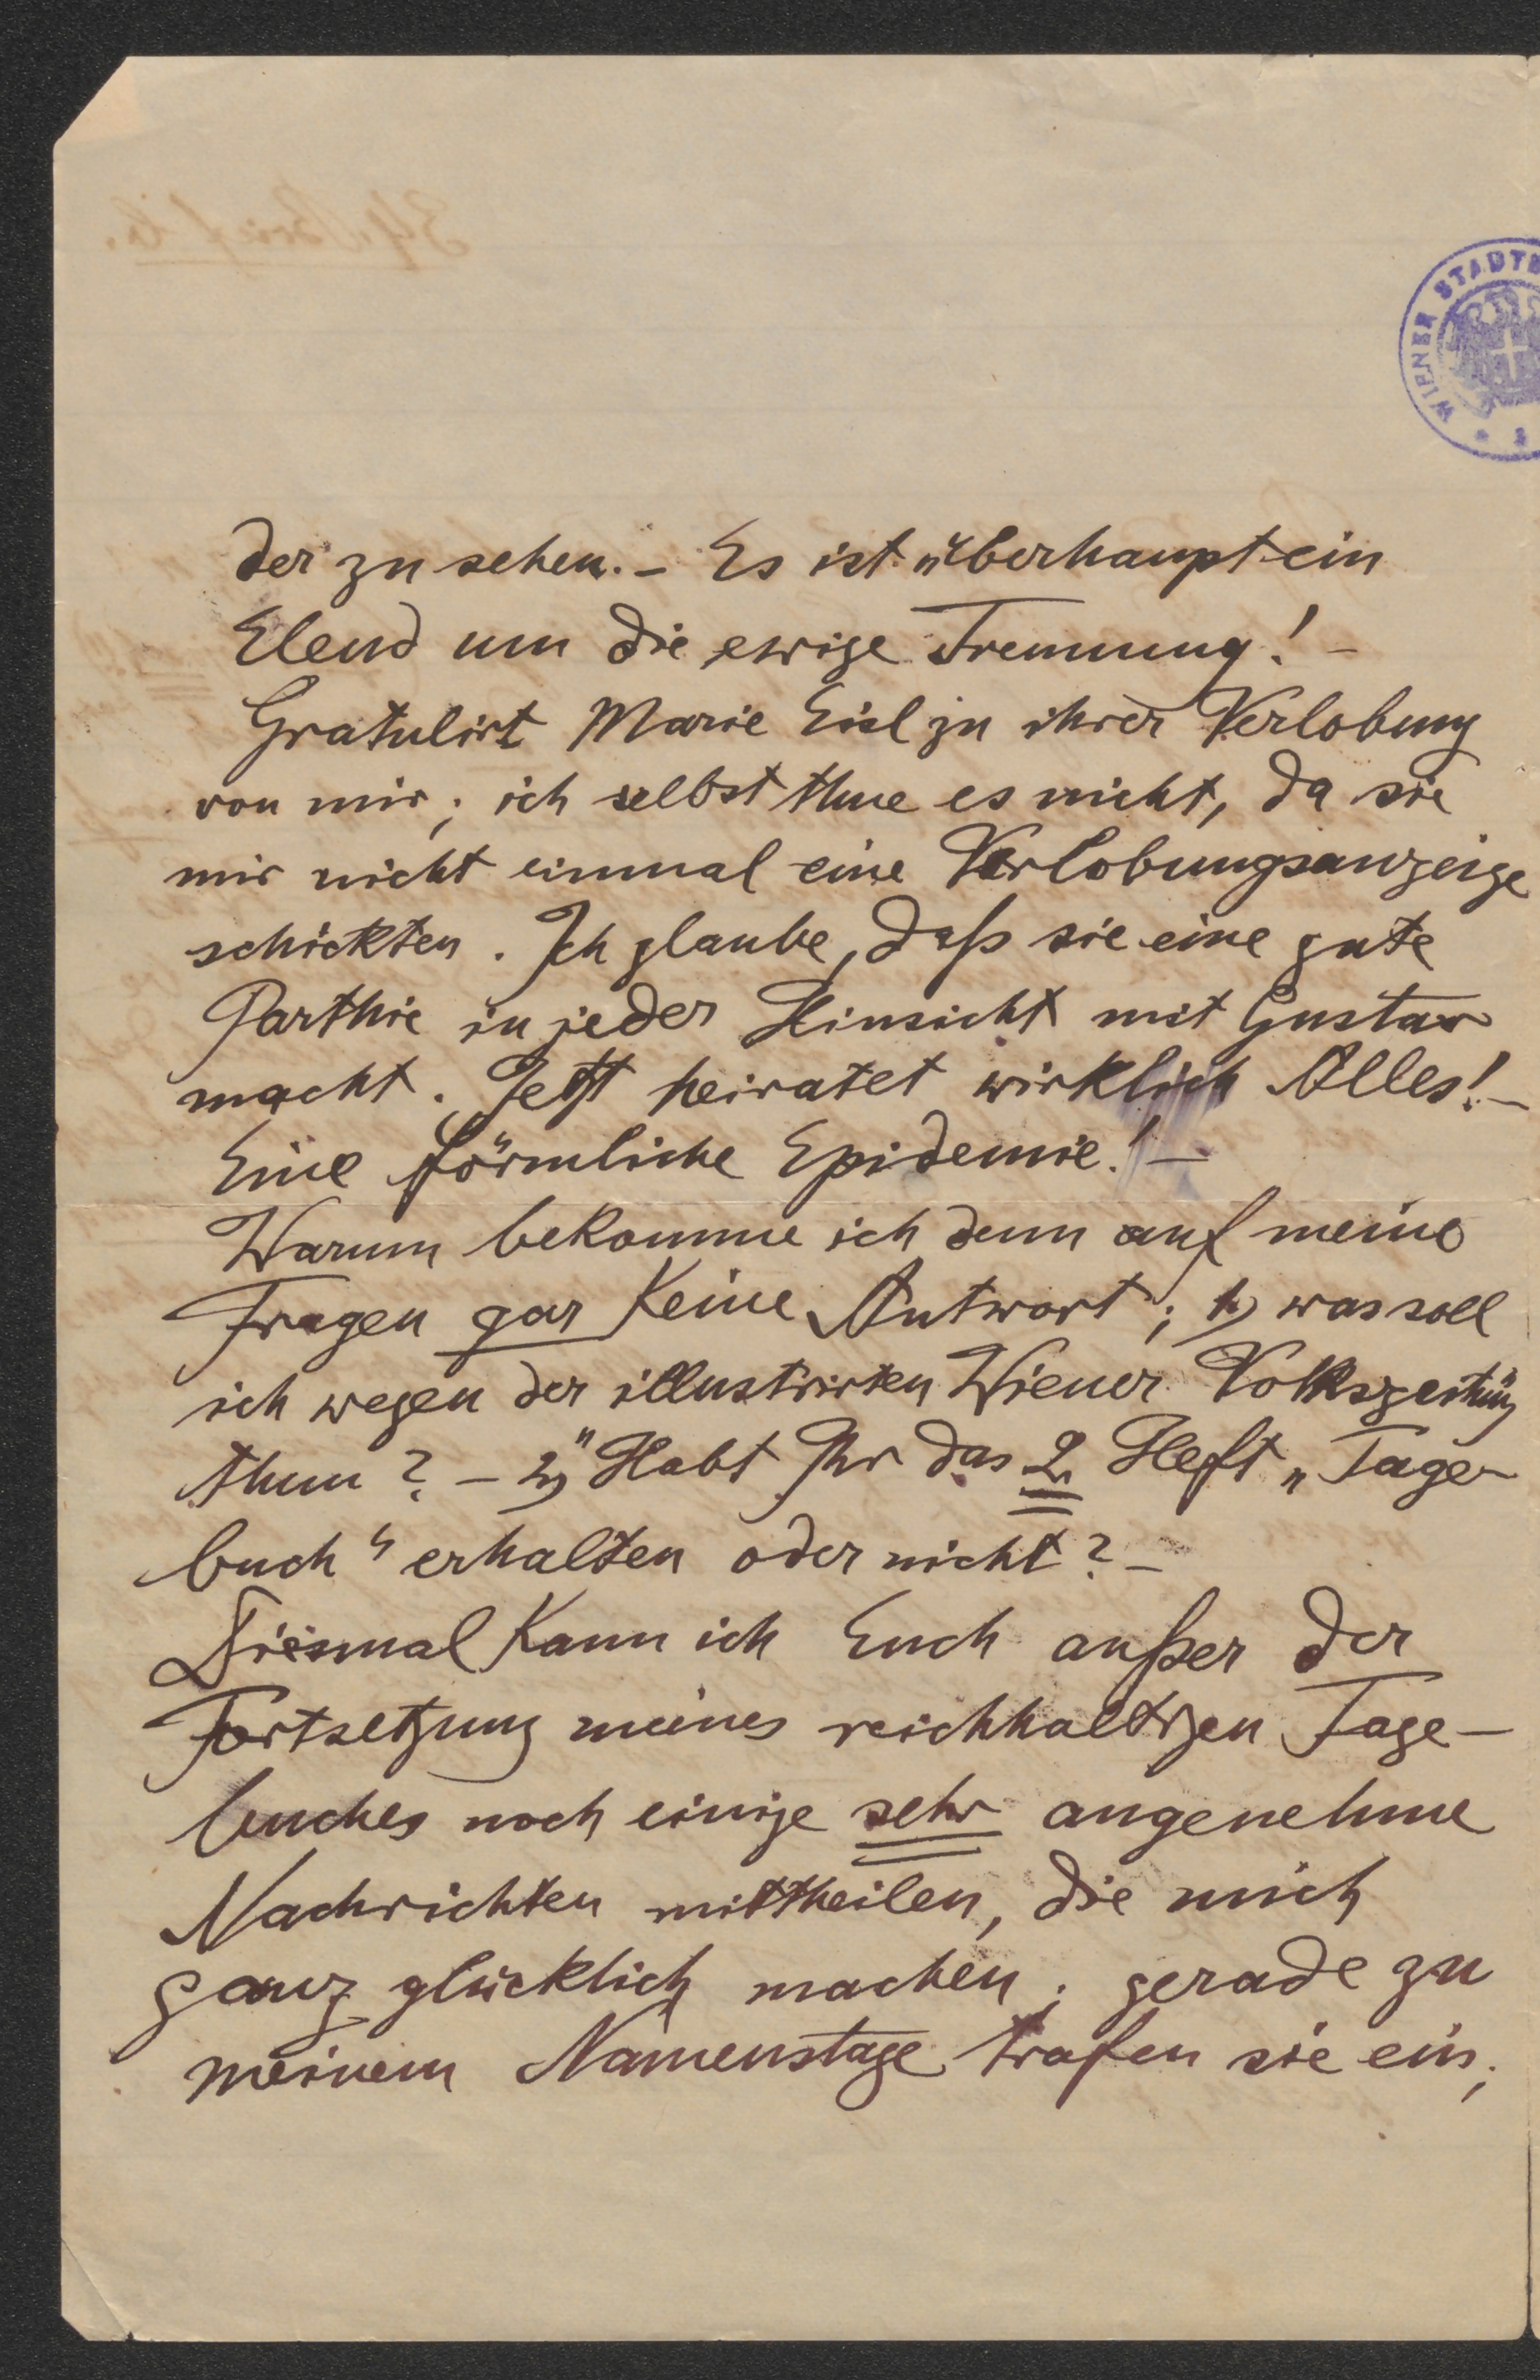 WIENER STADT
der zu sehen. – Es ist überhaupt ein
Elend um die ewige Trennung! –
Gratulirt Marie Eisl zu ihrer Verlobung
von mir; ich selbst thue es nicht, da sie
mir nicht einmal eine Verlobungsanzeige
schickten. Ich glaube, daß sie eine gute
Parthie in jeder Hinsicht mit Gustav
macht. Jetzt heiratet wirklich Alles! –
Eine förmliche Epidemie! –
Warum bekomme ich denn auf meine
Fragen gar keine Antwort; 1) was soll
ich wegen der illustrirten Wiener Volkszeitung
thun? – 2) Habt Ihr das 2. Heft „Tage-
buch“ erhalten oder nicht? –
Diesmal kann ich Euch außer der
Fortsetzung meines reichhaltigen Tage-
buches noch einige sehr angenehme
Nachrichten mittheilen, die mich
ganz glücklich machen; gerade zu
meinem Namenstage trafen sie ein;